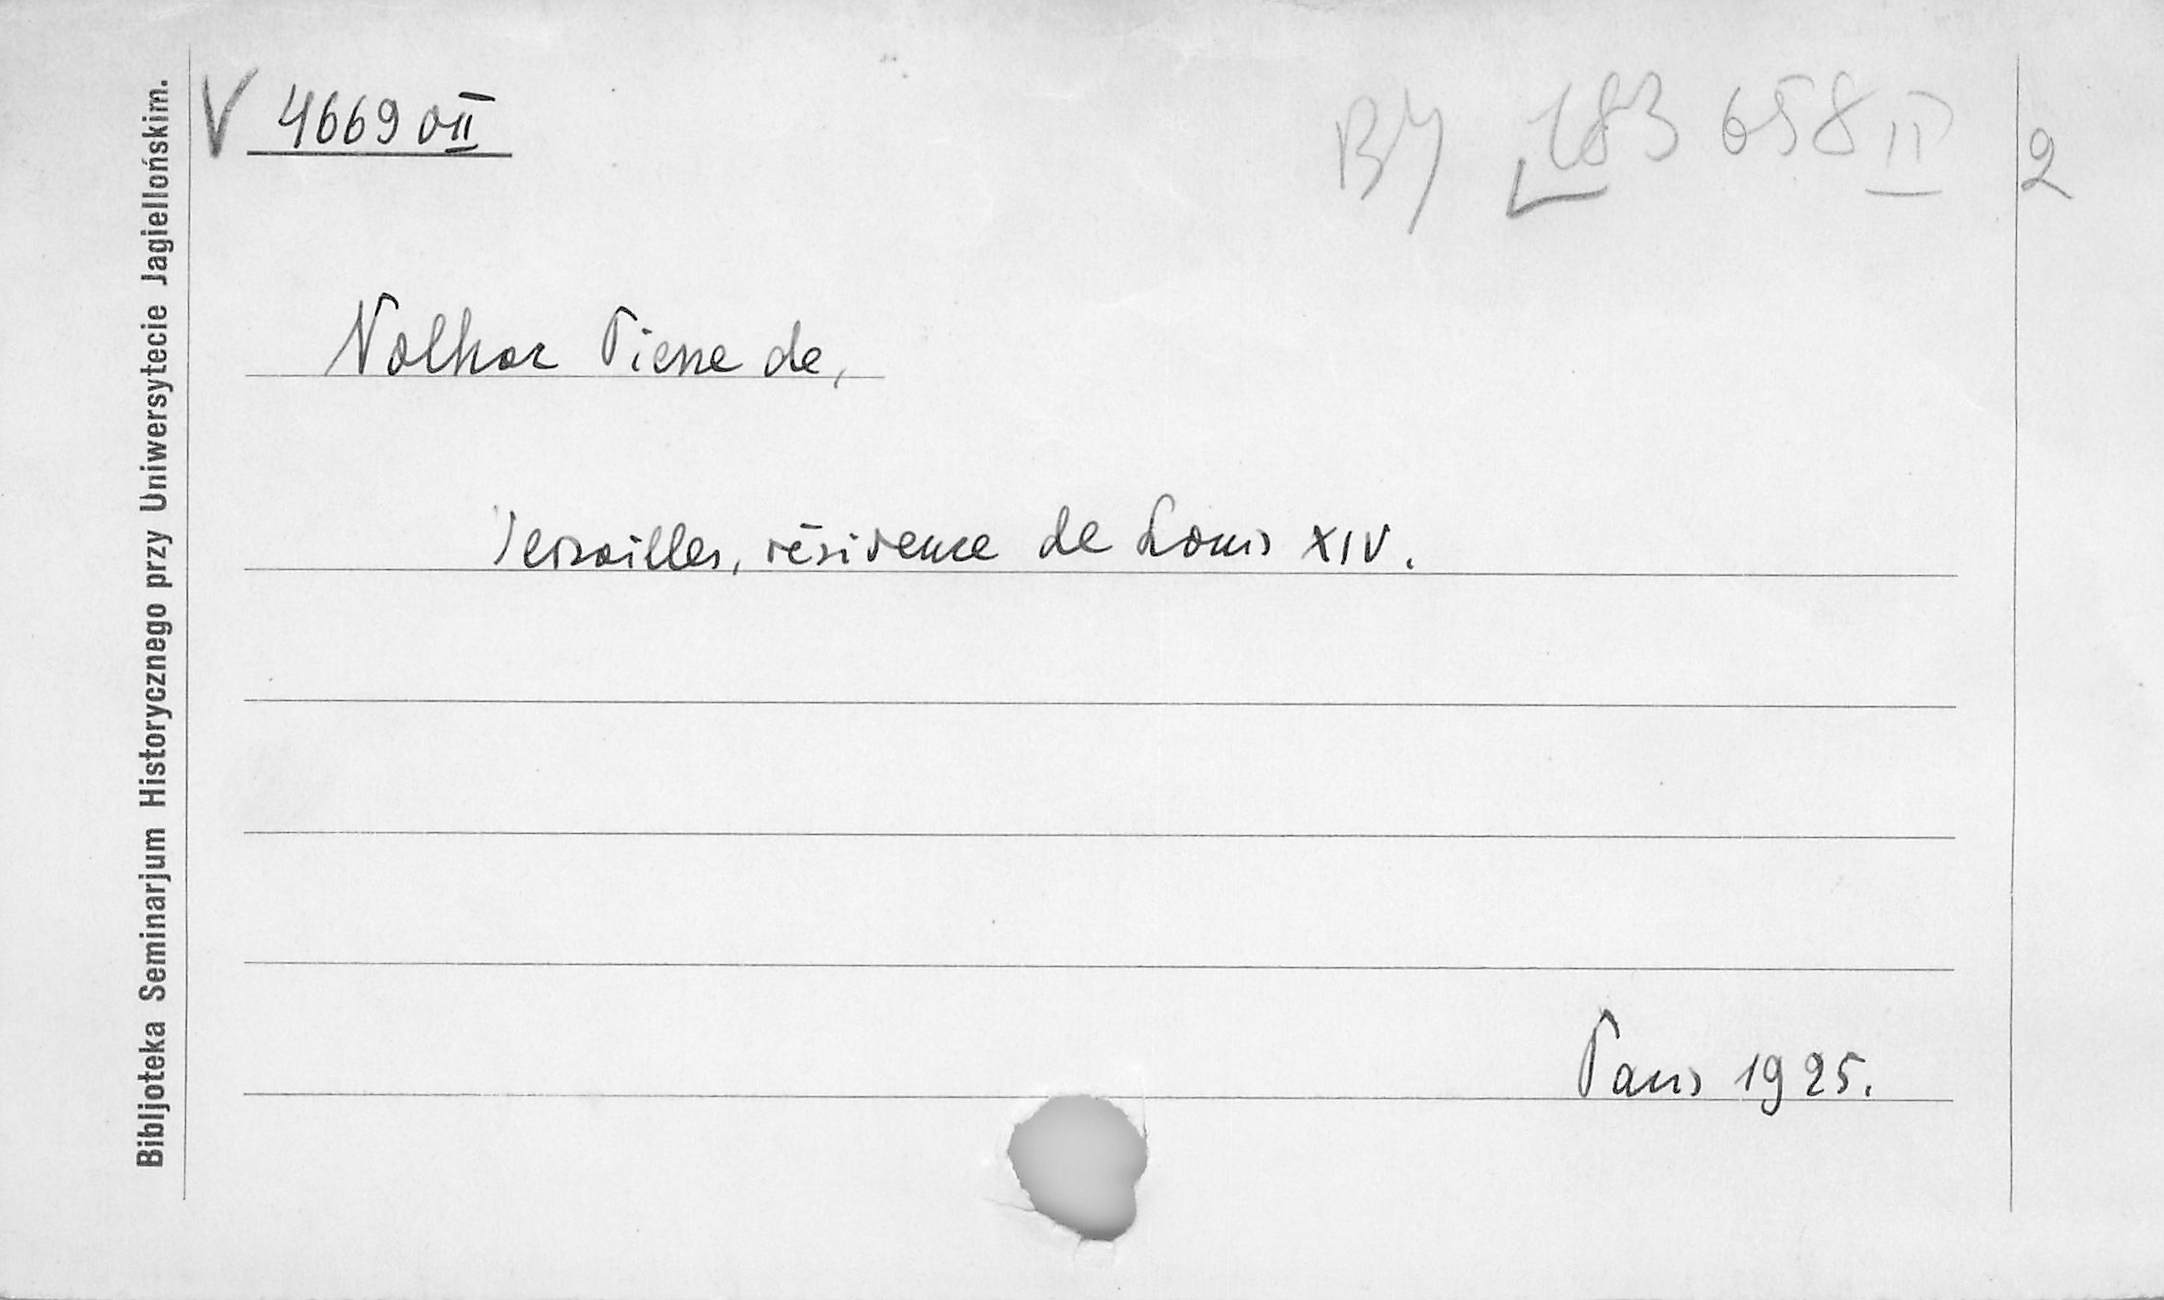 V 46690 II
BJ 183 658 II
2
Nolhac Pierre de,
Versailles, résidence de Louis XIV.
Paris 1925.
Bibljoteka Seminarjum Historycznego przy Uniwersytecie Jagiellońskim.